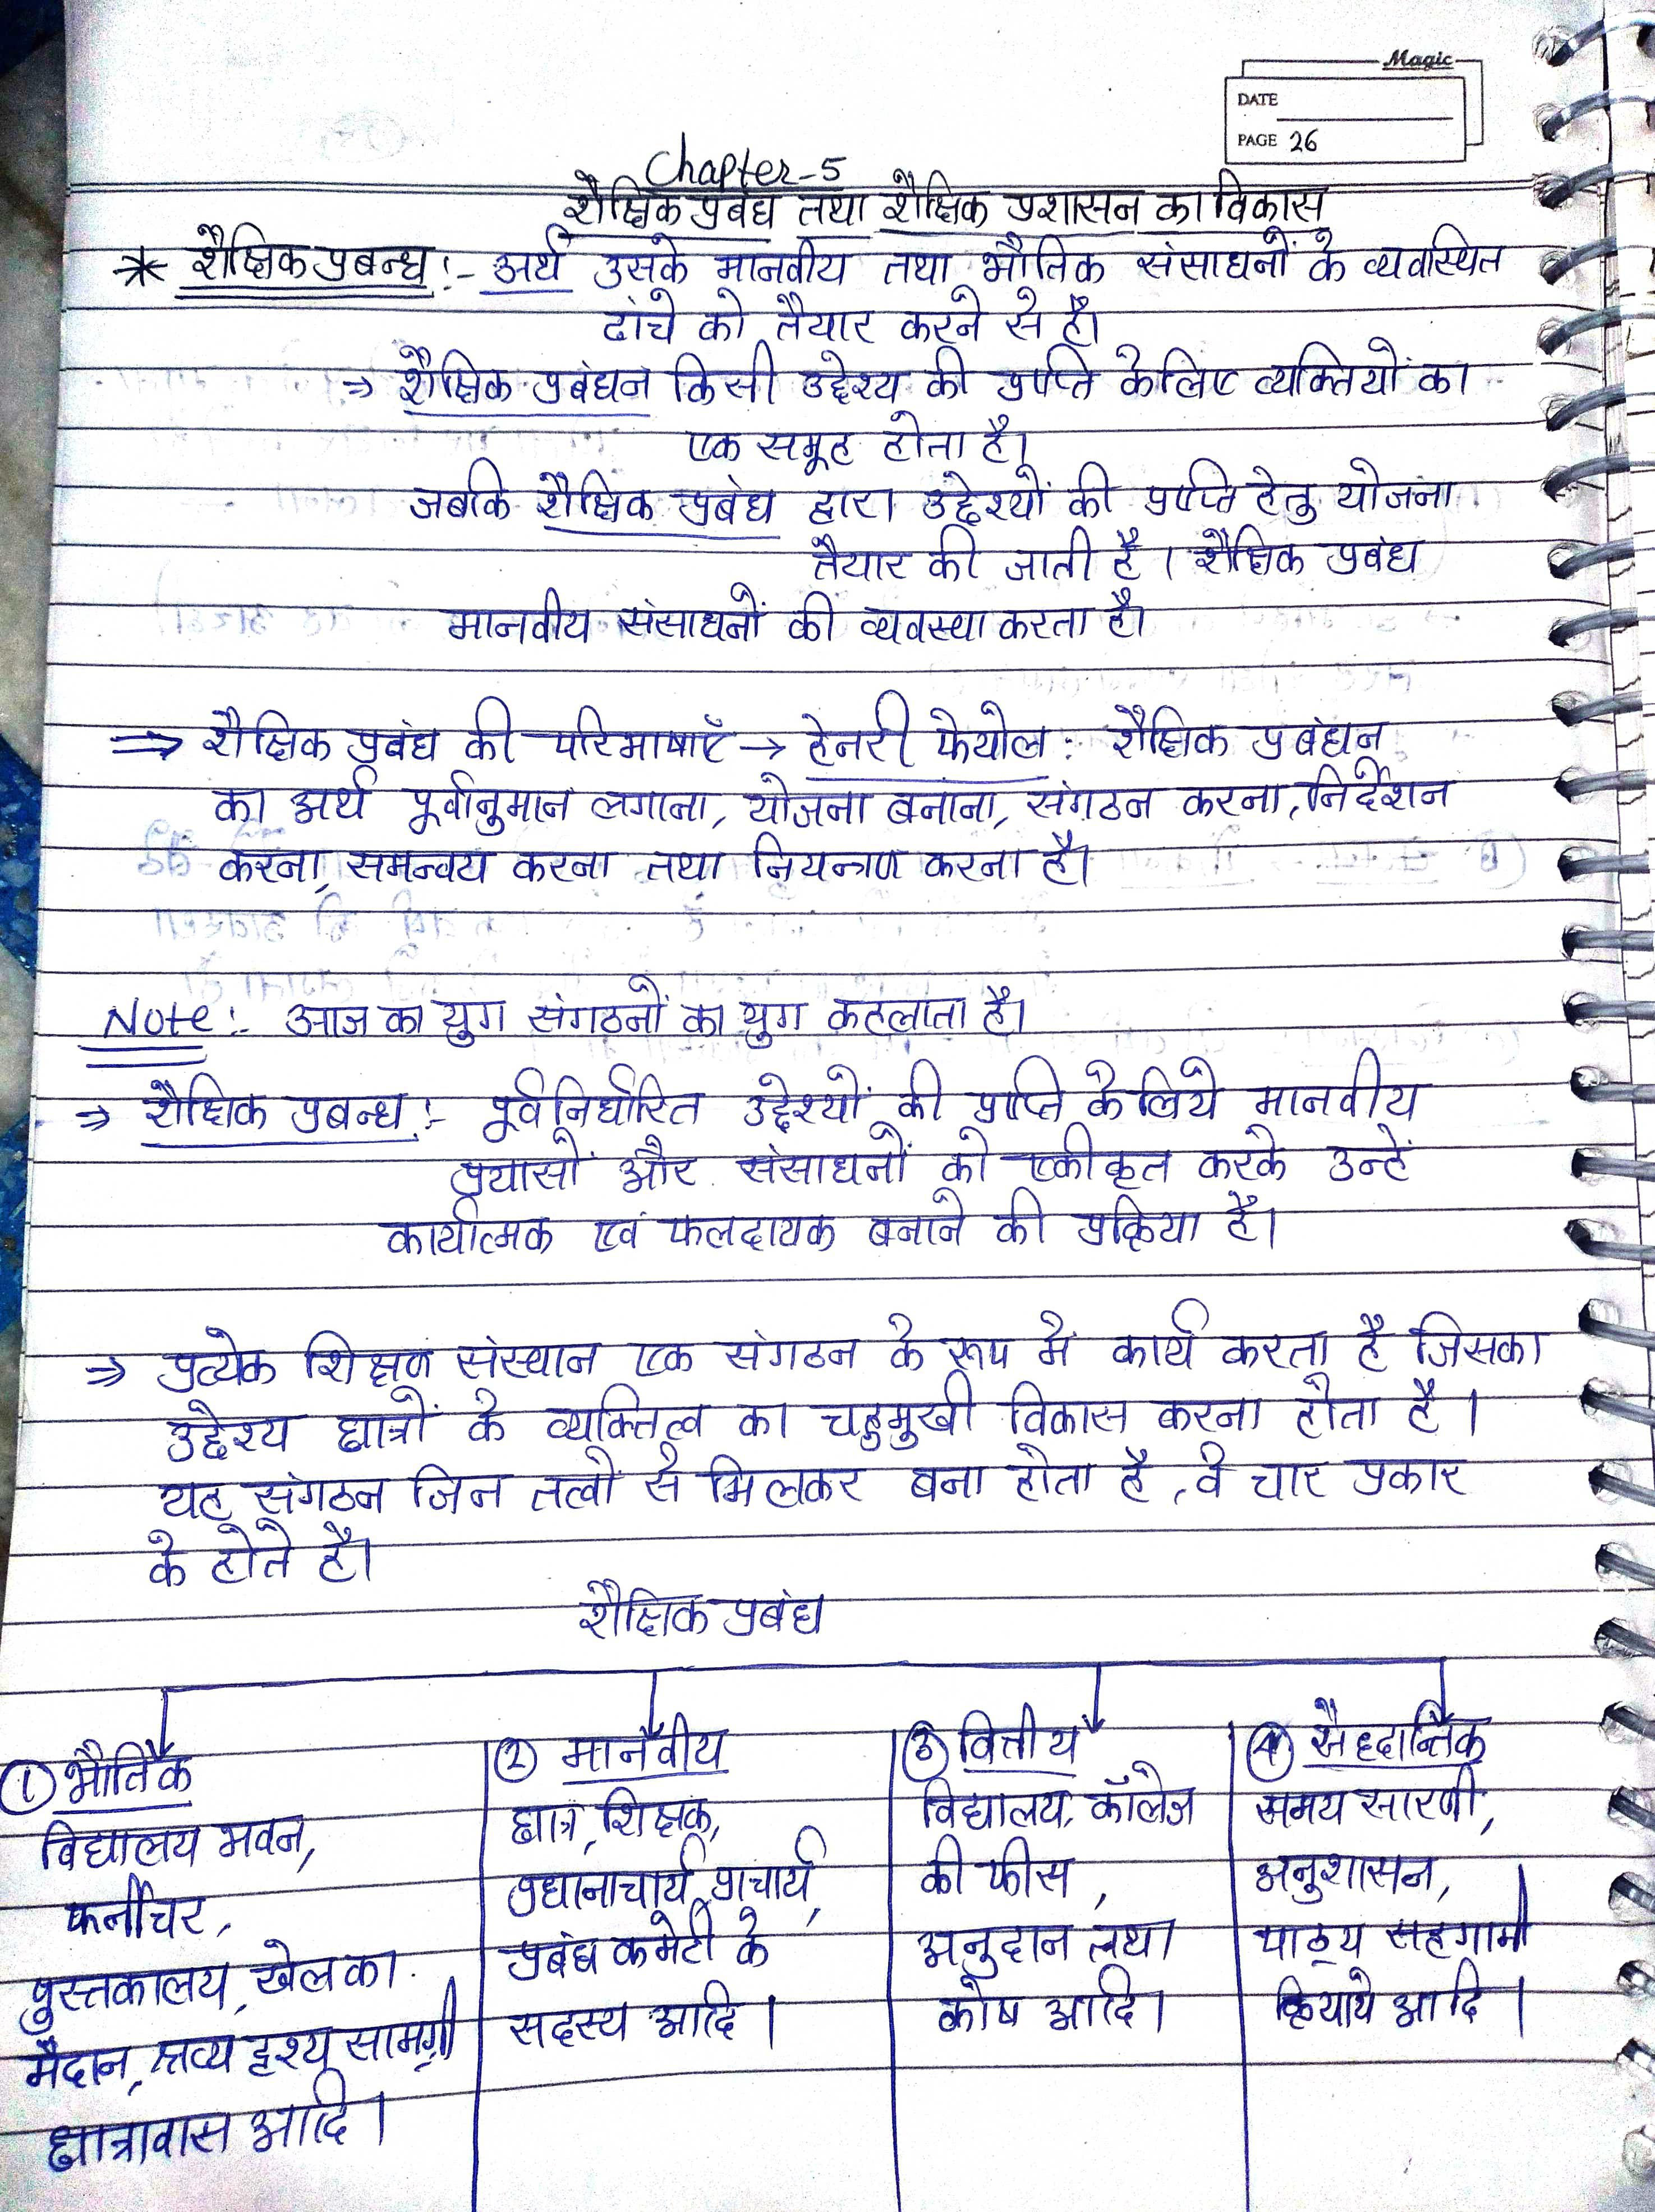 Magic
DATE
PAGE 26
Chapter-5
शैक्षिक प्रबंध तथा शैक्षिक प्रशासन का विकास
* शैक्षिक प्रबन्ध :- अर्थ उसके मानवीय तथा भौतिक संसाधनों के व्यवस्थित
ढांचे को तैयार करने से है।
⇒ शैक्षिक प्रबंधन किसी उद्देश्य की प्राप्ति के लिए व्यक्तियों का
एक समूह होता है।
जबकि शैक्षिक प्रबंध द्वारा उद्देश्यों की प्राप्ति हेतु योजना
तैयार की जाती है । शैक्षिक प्रबंध
मानवीय संसाधनों की व्यवस्था करता है।
⇒ शैक्षिक प्रबंध की परिभाषाएँ → हेनरी फेयोल : शैक्षिक प्रबंधन
का अर्थ पूर्वानुमान लगाना, योजना बनाना, संगठन करना, निर्देशन
करना, समन्वय करना तथा नियन्त्रण करना है।
Note :- आज का युग संगठनों का युग कहलाता है।
⇒ शैक्षिक प्रबन्ध :- पूर्व निर्धारित उद्देश्यों की प्राप्ति के लिये मानवीय
प्रयासों और संसाधनों को एकीकृत करके उन्हें
कार्यात्मक एवं फलदायक बनाने की प्रक्रिया है।
⇒ प्रत्येक शिक्षण संस्थान एक संगठन के रूप में कार्य करता है जिसका
उद्देश्य छात्रों के व्यक्तित्व का चहुमुखी विकास करना होता है ।
यह संगठन जिन तत्वों से मिलकर बना होता है, वे चार प्रकार
के होते है।
शैक्षिक प्रबंध
① भौतिक
विद्यालय भवन,
फर्नीचर,
पुस्तकालय, खेल का
मैदान, श्रव्य दृश्य सामग्री
छात्रावास आदि ।
② मानवीय
छात्र, शिक्षक,
प्रधानाचार्य, प्राचार्य,
प्रबंध कमेटी के
सदस्य आदि ।
③ वित्तीय
विद्यालय, कॉलेज
की फीस ,
अनुदान तथा
कोष आदि ।
④ सैद्दान्तिक
समय सारणी,
अनुशासन,
पाठ्य सहगामी
क्रियाये आदि ।